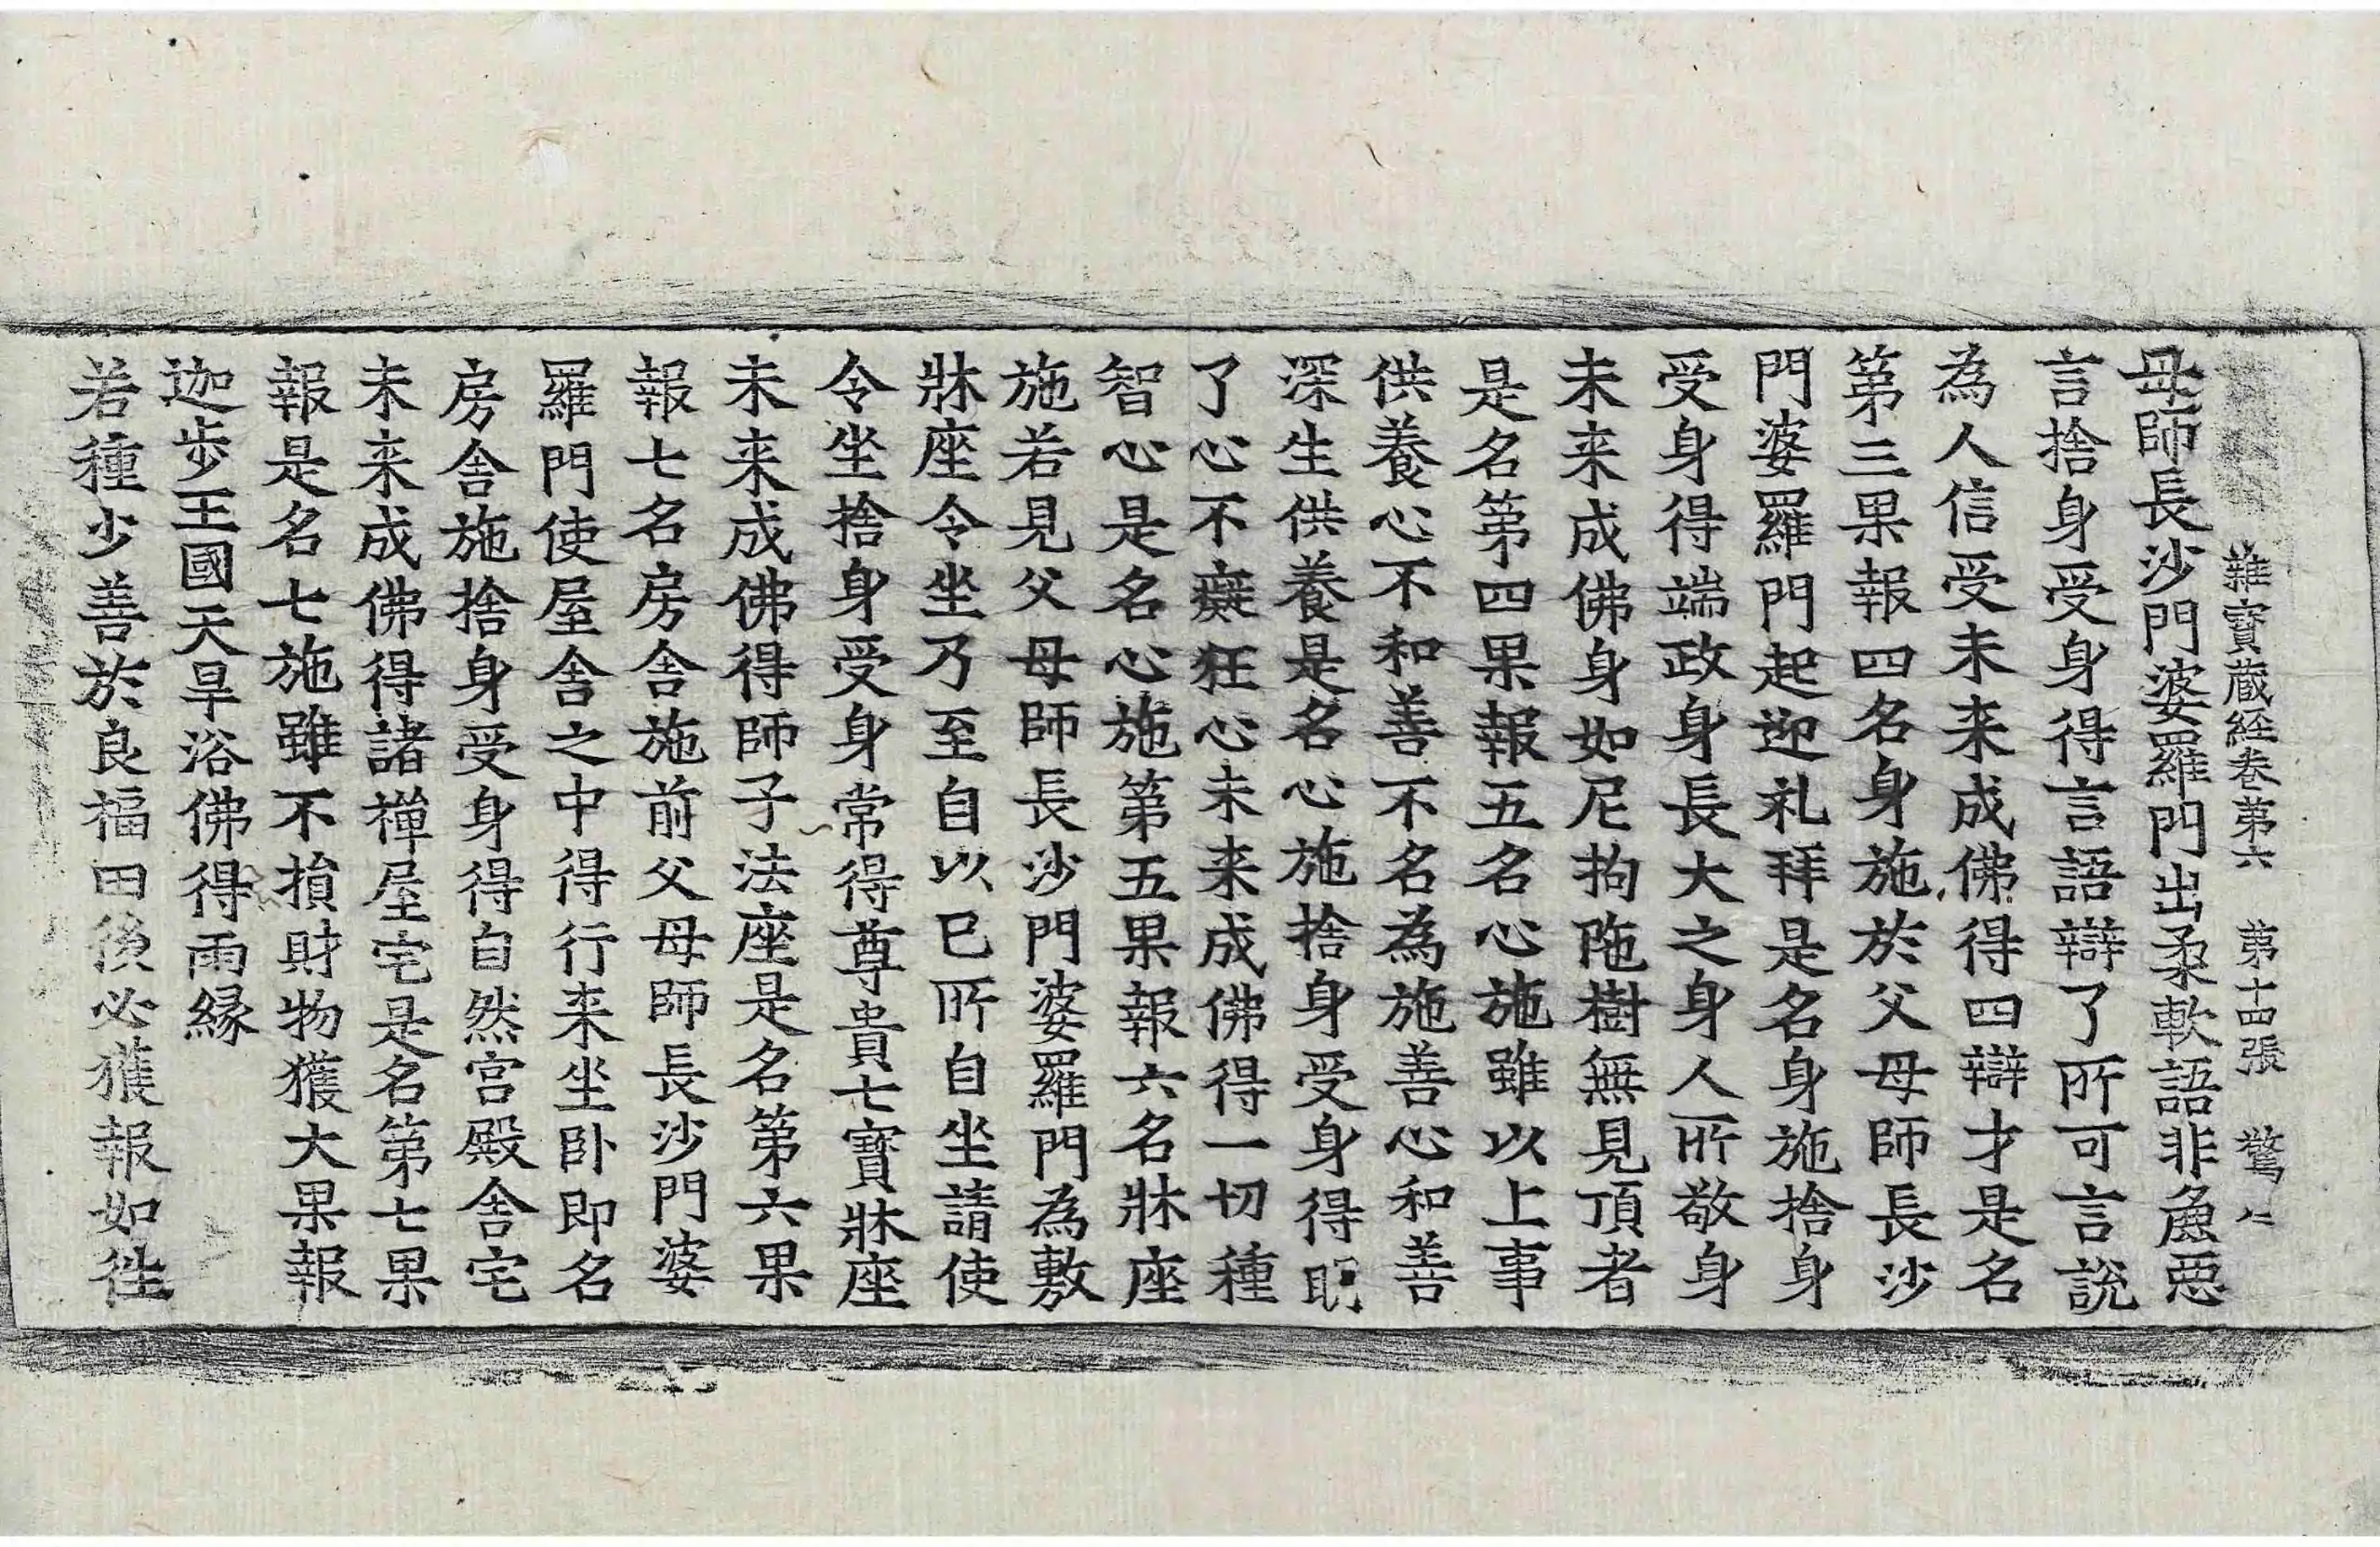 雜寶蔵経巻第六 第十四張 驚
母師長沙門婆羅門出柔軟語非麁悪
言捨身受身得言語辯了所可言說
為人信受未来成佛得四辯才是名
第三果報四名身施於父母師長沙
門婆羅門起迎礼拜是名身施捨身
受身得端政身長大之身人所敬身
未来成佛身如尼拘陁樹無見頂者
是名第四果報五名心施雖以上事
供養心不和善不名為施善心和善
深生供養是名心施捨身受身得明
了心不癡狂心未来成佛得一切種
智心是名心施第五果報六名牀座
施若見父母師長沙門婆羅門為敷
牀座令坐乃至自以已所自坐請使
令坐捨身受身常得尊貴七寶牀座
未来成佛得師子法座是名第六果
報七名房舍施前父母師長沙門婆
羅門使屋舍之中得行来坐卧即名
房舍施捨身受身得自然宫殿舍宅
未来成佛得諸禅屋宅是名第七果
報是名七施雖不損財物獲大果報
迦步王國天旱浴佛得雨縁
若種少善於良福田後必獲報如往